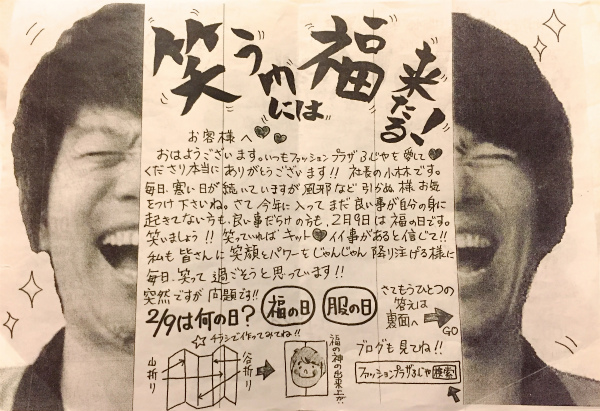 笑う門には福来たる!
お客様へ
おはようございます。いつもファッションプラザるじゃを愛して
くださり本当にありがとうございます!!社長の小林です。
毎日、寒い日が続いていますが風邪など引かぬ様お気
をつけ下さいね。さて今年に入ってまだ良い事が自分の身に
起きてない方も、良い事だらけの方も、2月9日は福の日です。
笑いましょう!!笑っていればキット♥イイ事があると信じて!!
私も皆さんに笑顔とパワーをじゃんじゃん降り注げる様に
毎日、笑って過ごそうと思っています!!
突然ですが問題です!!
2/9は何の日? 福の日 服の日
さてもうひとつの
答えは
裏面へ
GO
☆チラシで作ってみてね!!
山折り
谷折り
福の神の出来上が
ブログも見てね!!
ファッションプラザるじゃ 検索